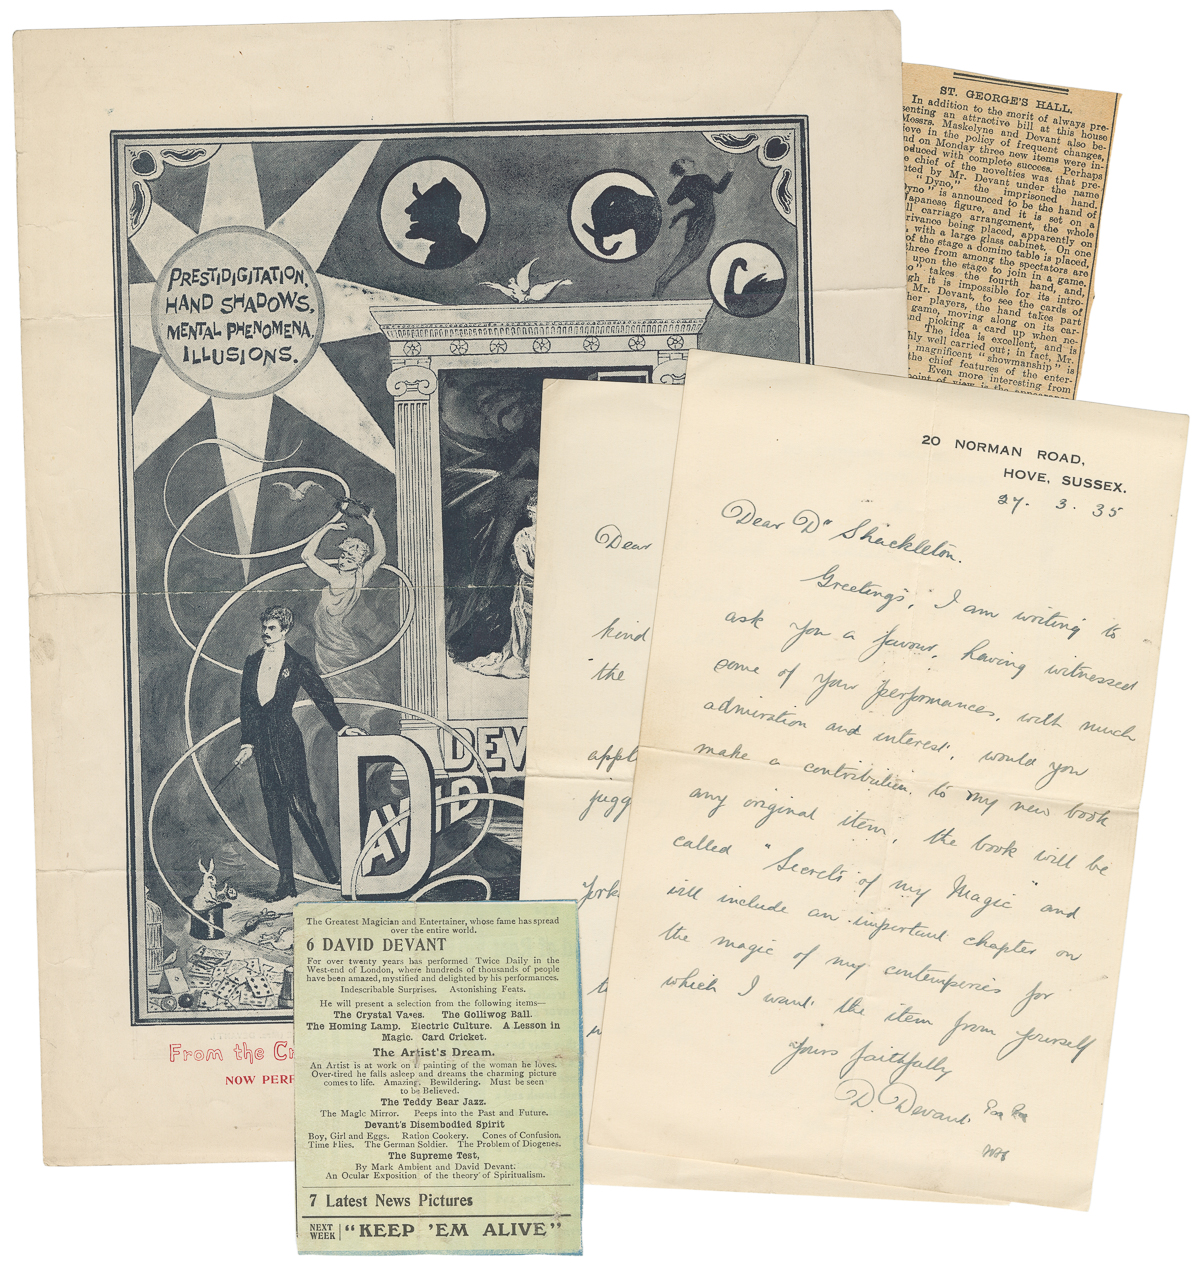 PRESTIDIGITATION,
HAND SHADOWS,
MENTAL PHENOMENA,
ILLUSIONS.
DEV
DAVID
From the
NOW PERF
ST. GEORGE'S HALL.
In addition to the merit of always pre-
senting an attractive bill at this house
Messrs. Maskelyne and Devant also be-
ieve in the policy of frequent changes,
nd on Monday three new items were in-
oduced with complete success. Perhaps
e chief of the novelties was that pre-
nted by Mr. Devant under the name
"Dyno," the imprisoned hand.
yno" is announced to be the hand of
Japanese figure, and it is set on a
ll carriage arrangement, the whole
rivance being placed, apparently on
with a large glass cabinet. On one
of the stage a domino table is placed,
three from among the spectators are
upon the stage to join in a game.
o" takes the fourth hand, and,
gh it is impossible for its intro-
Mr. Devant, to see the cards of
her players, the hand takes part
game, moving along on its car-
nd picking a card up when ne-
The idea is excellent, and is
hly well carried out; in fact, Mr.
magnificent "showmanship" is
the chief features of the enter-
Even more interesting from
point of view is the appearance
Dear
kind
the
appl
jugg
York
20 NORMAN ROAD,
HOVE, SUSSEX.
27. 3. 35
Dear Dr Shackleton.
Greetings, I am writing to
ask you a favour, having witnessed
some of your performances, with much
admiration and interest, would you
make a contribution to my new book
any original item, the book will be
called "Secrets of my Magic" and
will include an important chapter on
the magic of my contemperies for
which I want the item from yourself
Yours faithfully
D. Devant
The Greatest Magician and Entertainer, whose fame has spread
over the entire world.
6 DAVID DEVANT
For over twenty years has performed Twice Daily in the
West-end of London, where hundreds of thousands of people
have been amazed, mystified and delighted by his performances.
Indescribable Surprises. Astonishing Feats.
He will present a selection from the following items—
The Crystal Vases. The Golliwog Ball.
The Homing Lamp. Electric Culture. A Lesson in
Magic. Card Cricket.
The Artist's Dream.
An Artist is at work on painting of the woman he loves.
Over-tired he falls asleep and dreams the charming picture
comes to life. Amazing. Bewildering. Must be seen
to be Believed.
The Teddy Bear Jazz.
The Magic Mirror. Peeps into the Past and Future.
Devant's Disembodied Spirit
Boy, Girl and Eggs. Ration Cookery. Cones of Confusion.
Time Flies. The German Soldier. The Problem of Diogenes.
The Supreme Test,
By Mark Ambient and David Devant.
An Ocular Exposition of the theory of Spiritualism.
7 Latest News Pictures
NEXT WEEK "KEEP 'EM ALIVE"